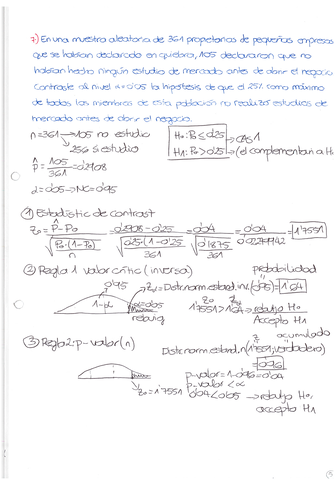 7) En una muestra aleatoria de 361 propietarios de pequeñas empresas
que se habían declarado en quiebra, 105 declararon que no
habían hecho ningún estudio de mercado antes de abrir el negocio
Contraste al nivel α=0'05 la hipótesis de que el 25% como máximo
de todos los miembros de esta población no realizó estudios de
mercado antes de abrir el negocio.
n=361 → 105 no estudio
256 sí estudio
H0: P ≤ 0'25 → CAS 1
H1: P > 0'25 → (el complementari a H
p̂ = 105/361 = 0'2908
α=0'05 → NC=0'95
① Estadístic de contrast
Z0 = p̂-P0 / √(P0·(1-P0)/n) = 0'2908-0'25 / √(0'25(1-0'25)/361) = 0'04 / √(0'1875/361) = 0'04 / 0'02279942 = 1'7551
② Regla 1 valor crític (inversa)
probabilidad
0'95
Zα = Distr.norm.estand.inv.(0'95) = 1'64
1-α
α=0'05
rebuig
Z0 Zα
1'7551 > 1'64 → rebutja H0
Accepto H1
③ Regla 2: p-valor (n)
acumulado
Distr.norm.estand.n(1'7551; verdadero)
= 0'96
Z0 = 1'7551
p-valor = 1-0'96 = 0'04
p-valor < α
0'04 < 0'05 → rebutjo H0,
accepto H1